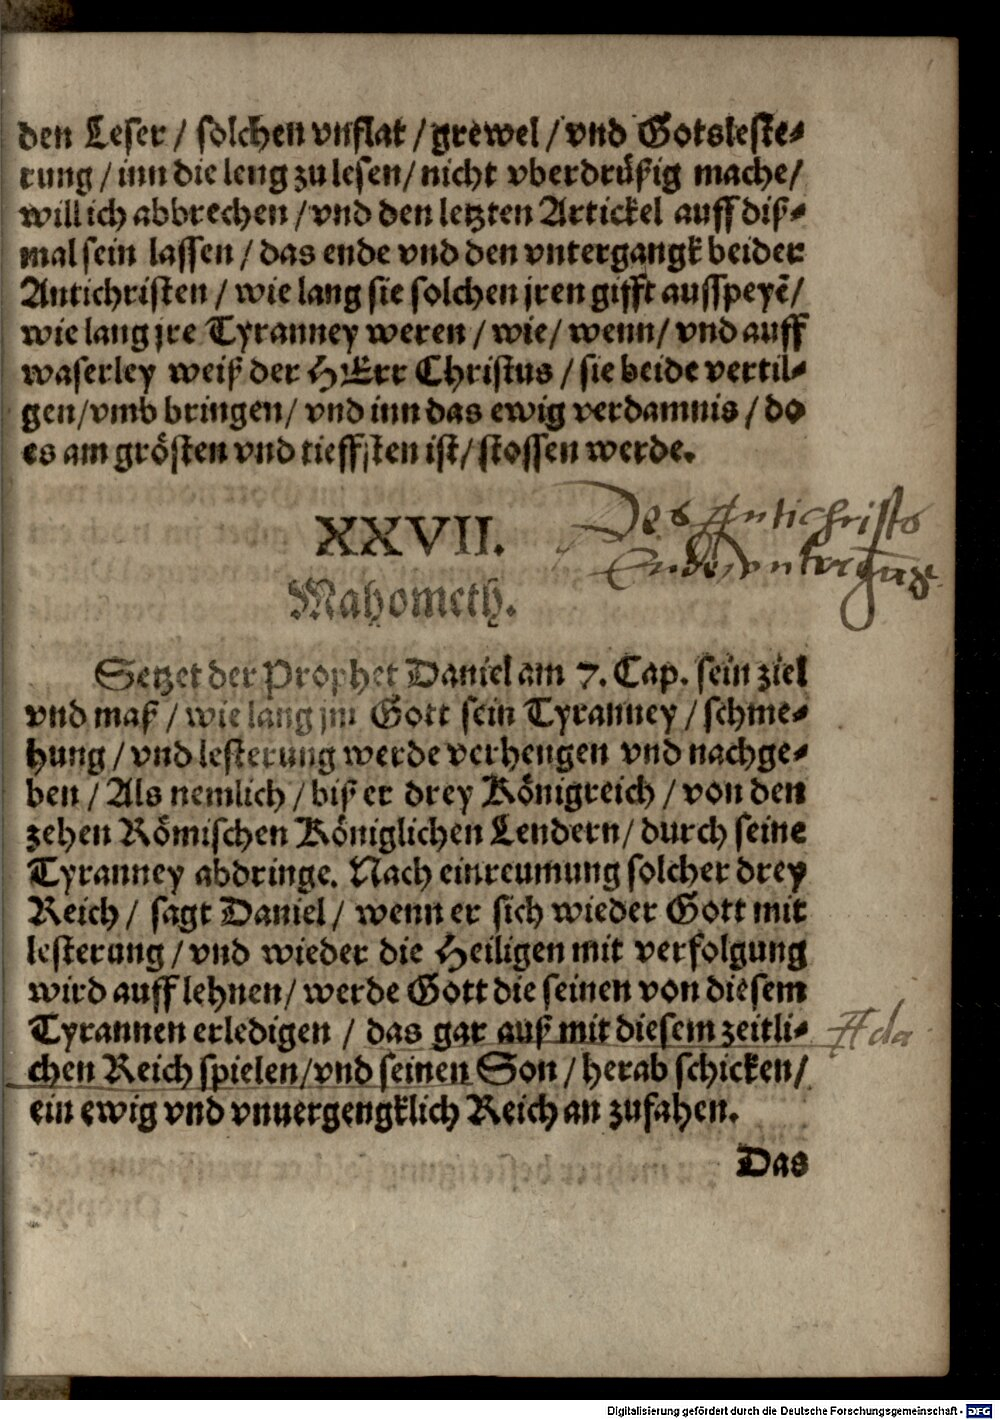 den Leser / solchen vnflat / grewel / vnd Gotsleste-
rung / inn die leng zu lesen / nicht vberdrüßig mache /
will ich abbrechen / vnd den letzten Artickel auff diß-
mal sein lassen / das ende vnd den vntergangk beider
Antichristen / wie lang sie solchen jren gifft ausspeyē /
wie lang jre Tyranney weren / wie / wenn / vnd auff
waserley weiß der HErr Christus / sie beide vertil-
gen / vmb bringen / vnd inn das ewig verdamnis / do
es am grösten vnd tieffsten ist / stossen werde.
Des Antichrists
Ende, vntergang
XXVII.
Mahometh.
Setzet der Prophet Daniel am 7. Cap. sein ziel
vnd maß / wie lang jm Gott sein Tyranney / schme-
hung / vnd lesterung werde verhengen vnd nachge-
ben / Als nemlich / biß er drey Königreich / von den
zehen Römischen Königlichen Lendern / durch seine
Tyranney abdringe. Nach einreumung solcher drey
Reich / sagt Daniel / wenn er sich wieder Gott mit
lesterung / vnd wieder die Heiligen mit verfolgung
wird auff lehnen / werde Gott die seinen von diesem
Tyrannen erledigen / das gar auß mit diesem zeitli-
chen Reich spielen / vnd seinen Son / herab schicken /
ein ewig vnd vnuergengklich Reich an zufahen.
Das
Digitalisierung gefördert durch die Deutsche Forschungsgemeinschaft - DFG